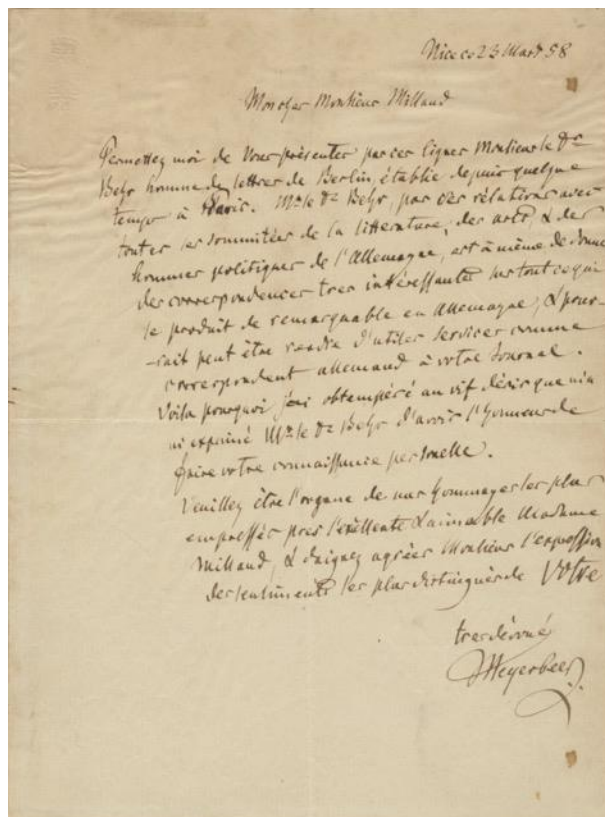 Nice ce 23 Mars 58
Mon cher Monsieur Millaud
Permettez moi de Vous présenter par ces lignes Monsieur le Dr
Behr homme des lettres de Berlin, établie depuis quelque
temps à Paris. Mr le Dr Behr, par ces rélations avec
toutes les sommitées de la litterature, des arts, & des
hommes politiques de l'Allemagne, est à même de donne
des correspondences tres intéressantes sur tout ce qui
se produit de remarquable en Allemagne, & pour-
-rait peut être rendre d'utiles services comme
correspondent allemand à votre Journal.
Voila pourquoi j'ai obtempéré au vif désir que m'a
exprimé Mr le Dr Behr d'avoir l'honneur de
faire votre connaissance personelle.
Veuillez être l'organe de mes hommages les plus
empressés pres l'exellente & aimable Madame
Millaud, & daignez agréer Monsieur l'expression
des sentiments les plus distingués de Votre
tres dévoué
Meyerbeer.